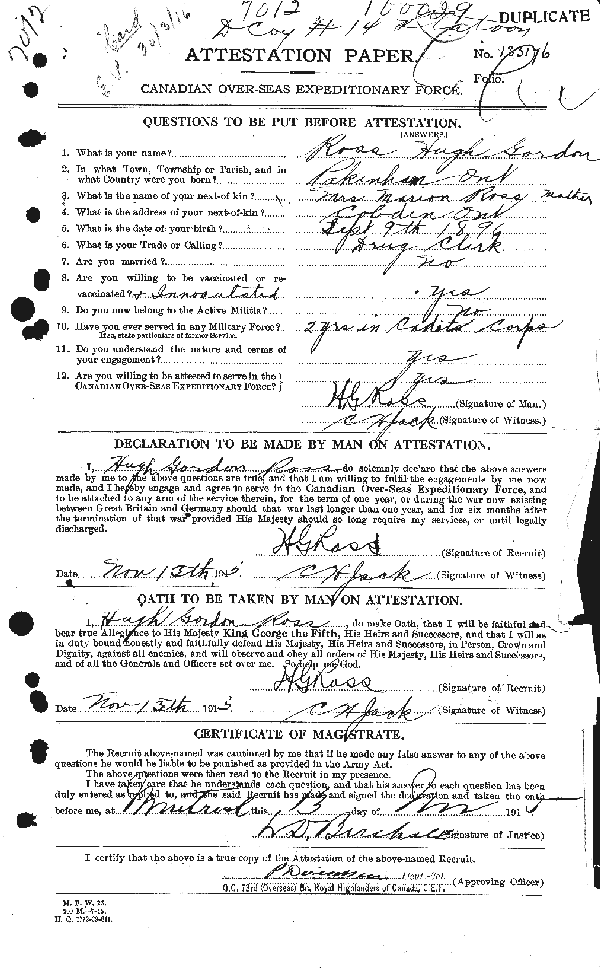 7012
DUPLICATE
7012
30/3/16
D Coy
ATTESTATION PAPER.
No.
Folio.
CANADIAN OVER-SEAS EXPEDITIONARY FORCE.
QUESTIONS TO BE PUT BEFORE ATTESTATION.
(ANSWERS.)
1. What is your name? Ross Hugh Gordon
2. In what Town, Township or Parish, and in
what Country were you born? Pakenham Ont
3. What is the name of your next-of-kin? Mrs Marion Ross Mother
4. What is the address of your next-of-kin? Cobden Ont
5. What is the date of your birth? Sept 9th 1896
6. What is your Trade or Calling? Drug Clerk
7. Are you married? No
8. Are you willing to be vaccinated or re-
vaccinated? & Innoculated yes
9. Do you now belong to the Active Militia? No
10. Have you ever served in any Military Force? 2 yrs in Cadets Corps
If so, state particulars of former Service.
11. Do you understand the nature and terms of
your engagement? yes
12. Are you willing to be attested to serve in the
CANADIAN OVER-SEAS EXPEDITIONARY FORCE? yes
H G Ross (Signature of Man.)
C H Jack (Signature of Witness.)
DECLARATION TO BE MADE BY MAN ON ATTESTATION.
I, Hugh Gordon Ross do solemnly declare that the above answers
made by me to the above questions are true, and that I am willing to fulfil the engagements by me now
made, and I hereby engage and agree to serve in the Canadian Over-Seas Expeditionary Force, and
to be attached to any arm of the service therein, for the term of one year, or during the war now existing
between Great Britain and Germany should that war last longer than one year, and for six months after
the termination of that war provided His Majesty should so long require my services, or until legally
discharged.
H G Ross (Signature of Recruit)
Date Nov 13th 1915 C H Jack (Signature of Witness)
OATH TO BE TAKEN BY MAN ON ATTESTATION.
I, Hugh Gordon Ross, do make Oath, that I will be faithful and
bear true Allegiance to His Majesty King George the Fifth, His Heirs and Successors, and that I will as
in duty bound honestly and faithfully defend His Majesty, His Heirs and Successors, in Person, Crown and
Dignity, against all enemies, and will observe and obey all orders of His Majesty, His Heirs and Successors,
and of all the Generals and Officers set over me. So help me God.
H G Ross (Signature of Recruit)
Date Nov 13th 1915 C H Jack (Signature of Witness)
CERTIFICATE OF MAGISTRATE.
The Recruit above-named was cautioned by me that if he made any false answer to any of the above
questions he would be liable to be punished as provided in the Army Act.
The above questions were then read to the Recruit in my presence.
I have taken care that he understands each question, and that his answer to each question has been
duly entered as replied to, and the said Recruit has made and signed the declaration and taken the oath
before me, at Montreal this 13 day of Nov 191
(Signature of Justice)
I certify that the above is a true copy of the Attestation of the above-named Recruit.
(Approving Officer)
O.C. 73rd (Overseas) Bn, Royal Highlanders of Canada, C.E.F.
M. F. W. 23.